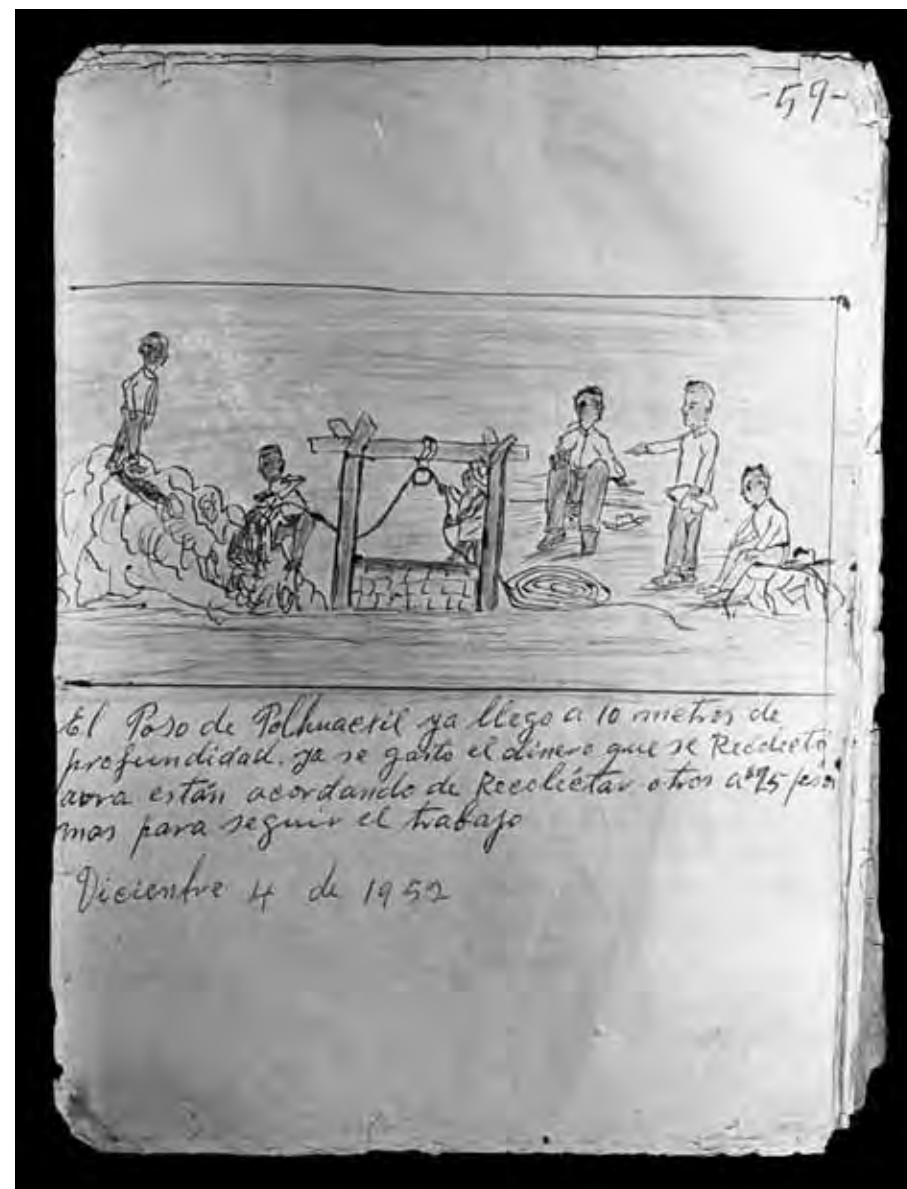 -59-
El Poso de Polhuacxil ya llego a 10 metros de
profundidad. ya se gasto el dinero que se Recolectó
aora están acordando de Recoléctar otros a $25 pesos
mas para seguir el trabajo
Diciembre 4 de 1952